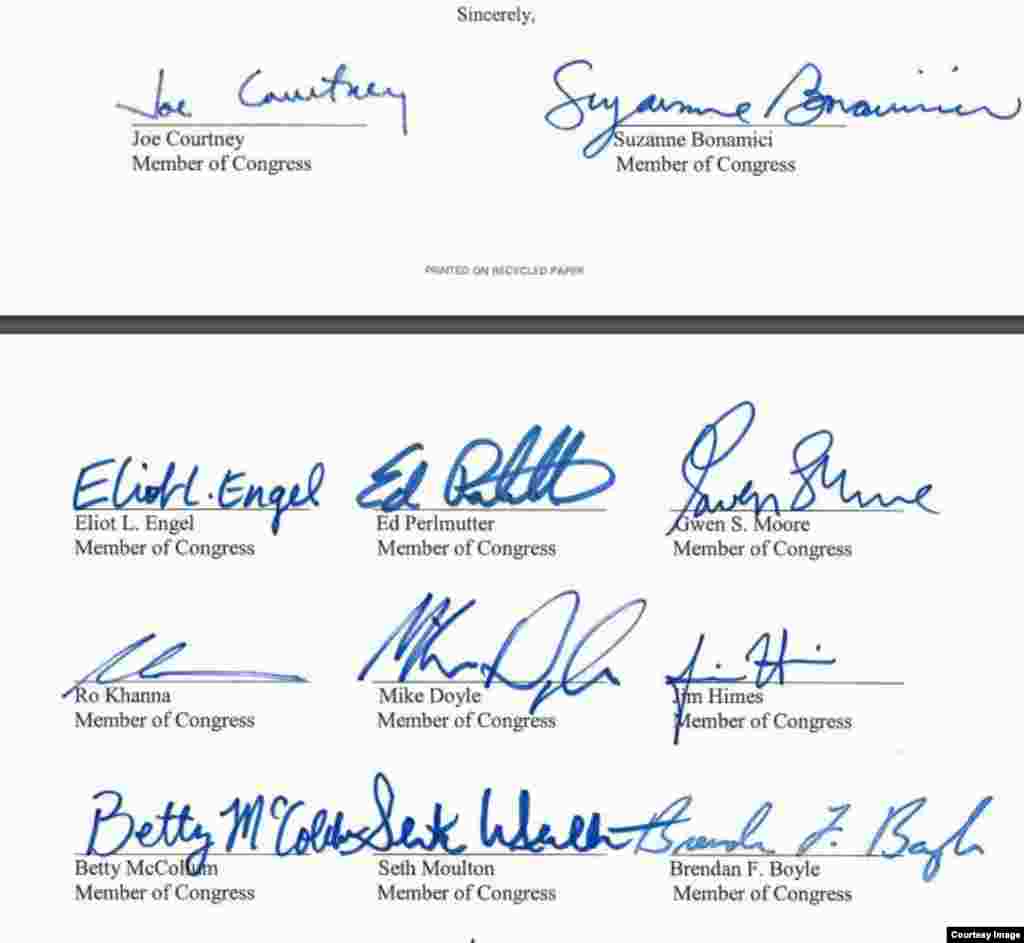 Sincerely,
Joe Courtney Suzanne Bonamici
Joe Courtney Suzanne Bonamici
Member of Congress Member of Congress
PRINTED ON RECYCLED PAPER
Eliot L. Engel Ed Gwen S Moore
Eliot L. Engel Ed Perlmutter Gwen S. Moore
Member of Congress Member of Congress Member of Congress
Mike Doyle Jim Himes
Ro Khanna Mike Doyle Jim Himes
Member of Congress Member of Congress Member of Congress
Betty McCollum Seth Brendan F. Boyle
Betty McCollum Seth Moulton Brendan F. Boyle
Member of Congress Member of Congress Member of Congress
Courtesy Image